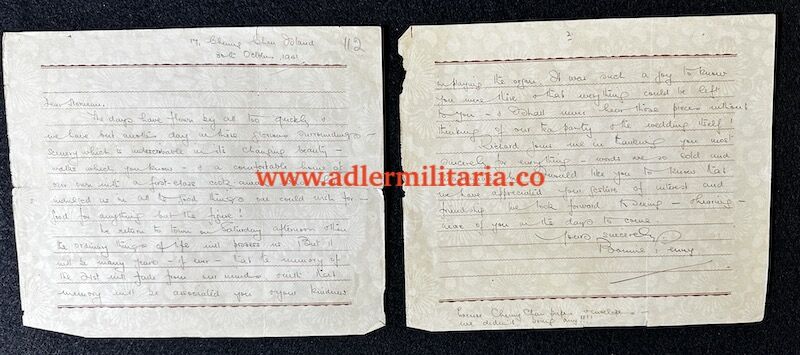 17, Cheung Chau Island
30th October, 1941
112
Dear Norman,
The days have flown by all too quickly &
we have but another day in these glorious surroundings –
scenery which is indescribable in its changing beauty –
walks which you know – & a comfortable home of
our own with a first-class cook amah who has
indulged us in all the good things one could wish for –
good for anything but the figure!
We return to town on Saturday afternoon when
the ordinary things of life will possess us. But it
will be many years – if ever – that the memory of
the 21st will fade from our minds & with that
memory will be associated you & your kindness
www.adlermilitaria.co
2
in playing the organ. It was such a joy to know
you were there & that everything could be left
to you – & I shall never hear those pieces without
thinking of our tea party & the wedding itself!
Richard joins me in thanking you most
sincerely for everything – words are so cold and
would like you to know that
we have appreciated your gesture of interest and
friendship. We look forward to seeing – & hearing –
more of you in the days to come.
Yours sincerely,
Bonnie Penny
Excuse Cheung Chau paper & envelope –
we didn't bring any!!!